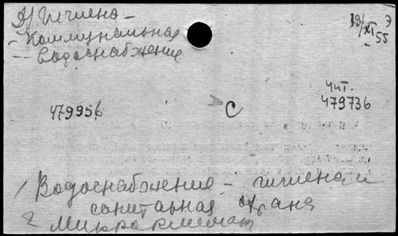 А) Гигиена –
– Коммунальная
– Водоснабжение
19/XI 55
Э
479956
С
чит.
479736
1 Водоснабжение – гигиена и
санитарная охрана
2 Микроклимат